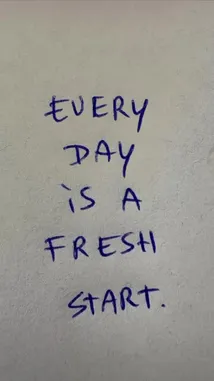 EVERY
DAY
iS A
FRESH
START.